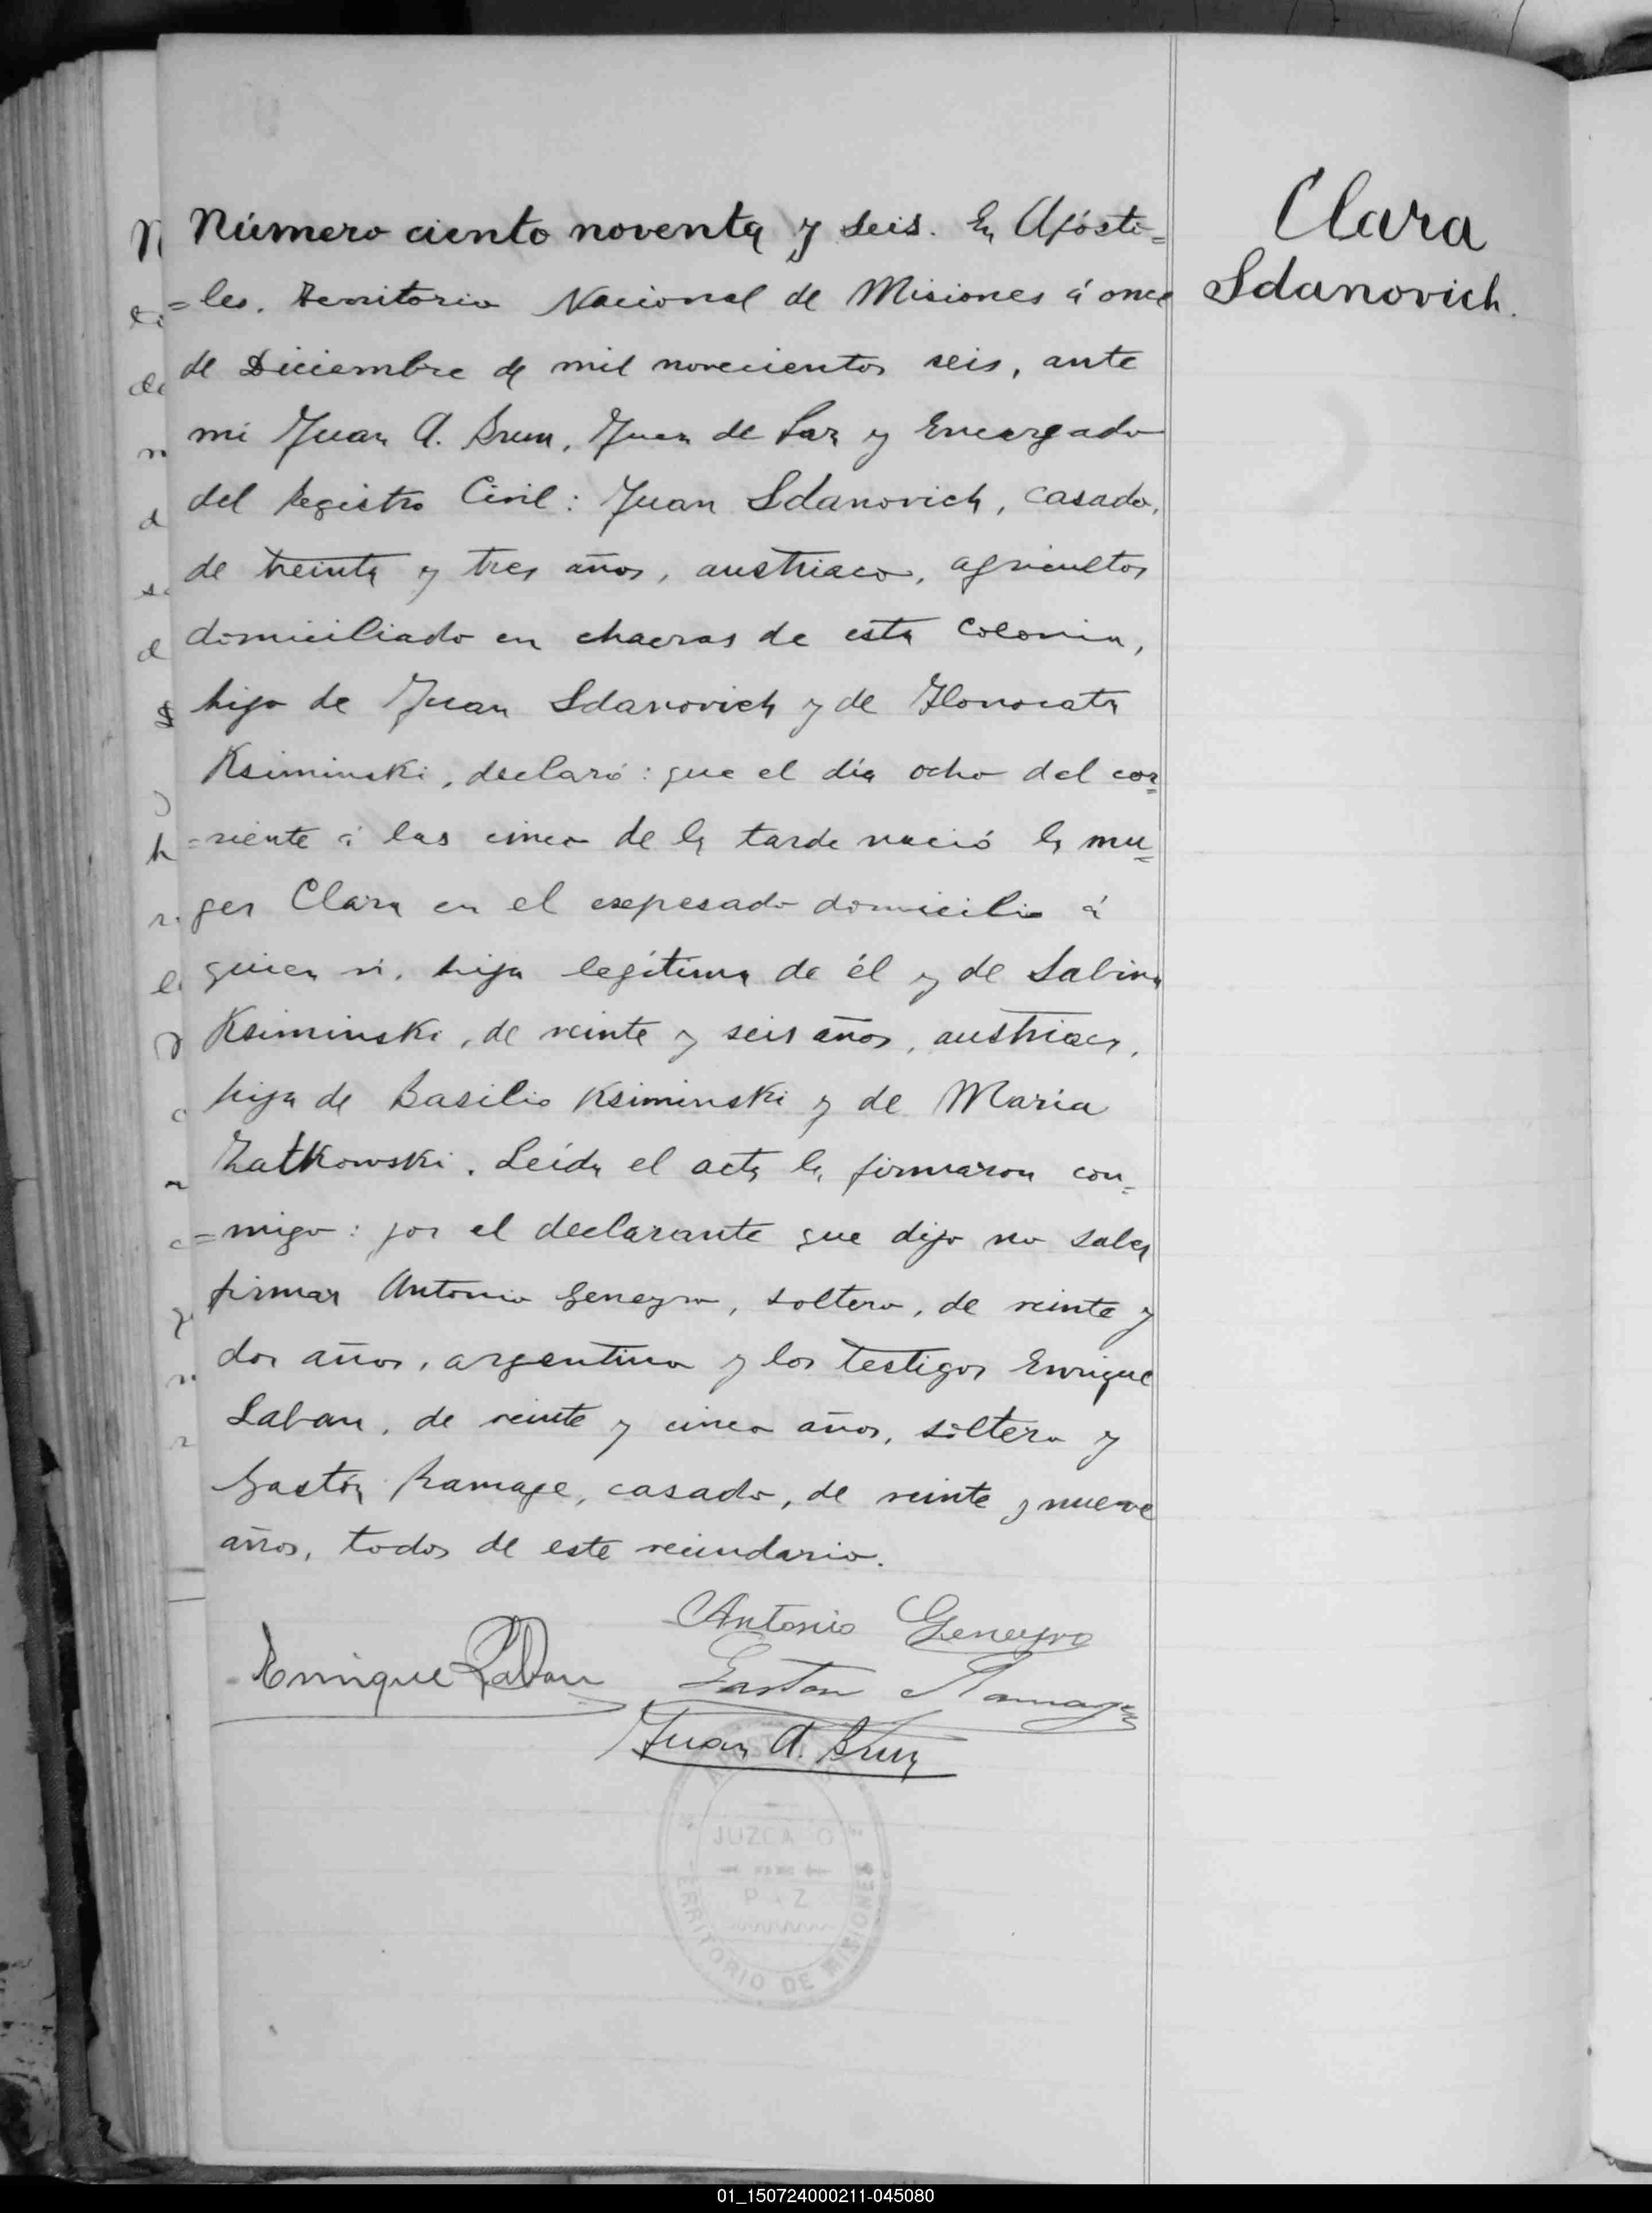 Número ciento noventa y seis. En Apósto=
=les. Territorio Nacional de Misiones á once
de Diciembre de mil novecientos seis, ante
mi Juan A. Brun, Juez de Paz y Encargado
del Registro Civil: Juan Sdanovich, casado,
de treinta y tres años, austriaco, agricultor
domiciliado en chacras de esta Colonia,
hijo de Juan Sdanovich y de Honorata
Ksiminski, declaró: que el día ocho del cor=
=riente á las cinco de la tarde nació la mu=
ger Clara en el expesado domicilio á
quien vi, hija legítima de él y de Sabina
Ksiminski, de veinte y seis años, austriaca,
hija de Basilio Ksiminski y de María
Zatkowski. Leida el acta la firmaron con=
=migo: por el declarante que dijo no saber
firmar Antonio Geneyro, soltero, de veinte y
dos años, argentino y los testigos Enrique
Laban, de veinte y cinco años, soltero y
Gastón Ramage, casado, de veinte y nueve
años, todos de este vecindario.
Antonio Geneyro
Enrique Laban Gaston Ramage
Juan A. Brun
JUZGADO
PAZ
TERRITORIO DE MISIONES
Clara
Sdanovich.
01_150724000211-045080